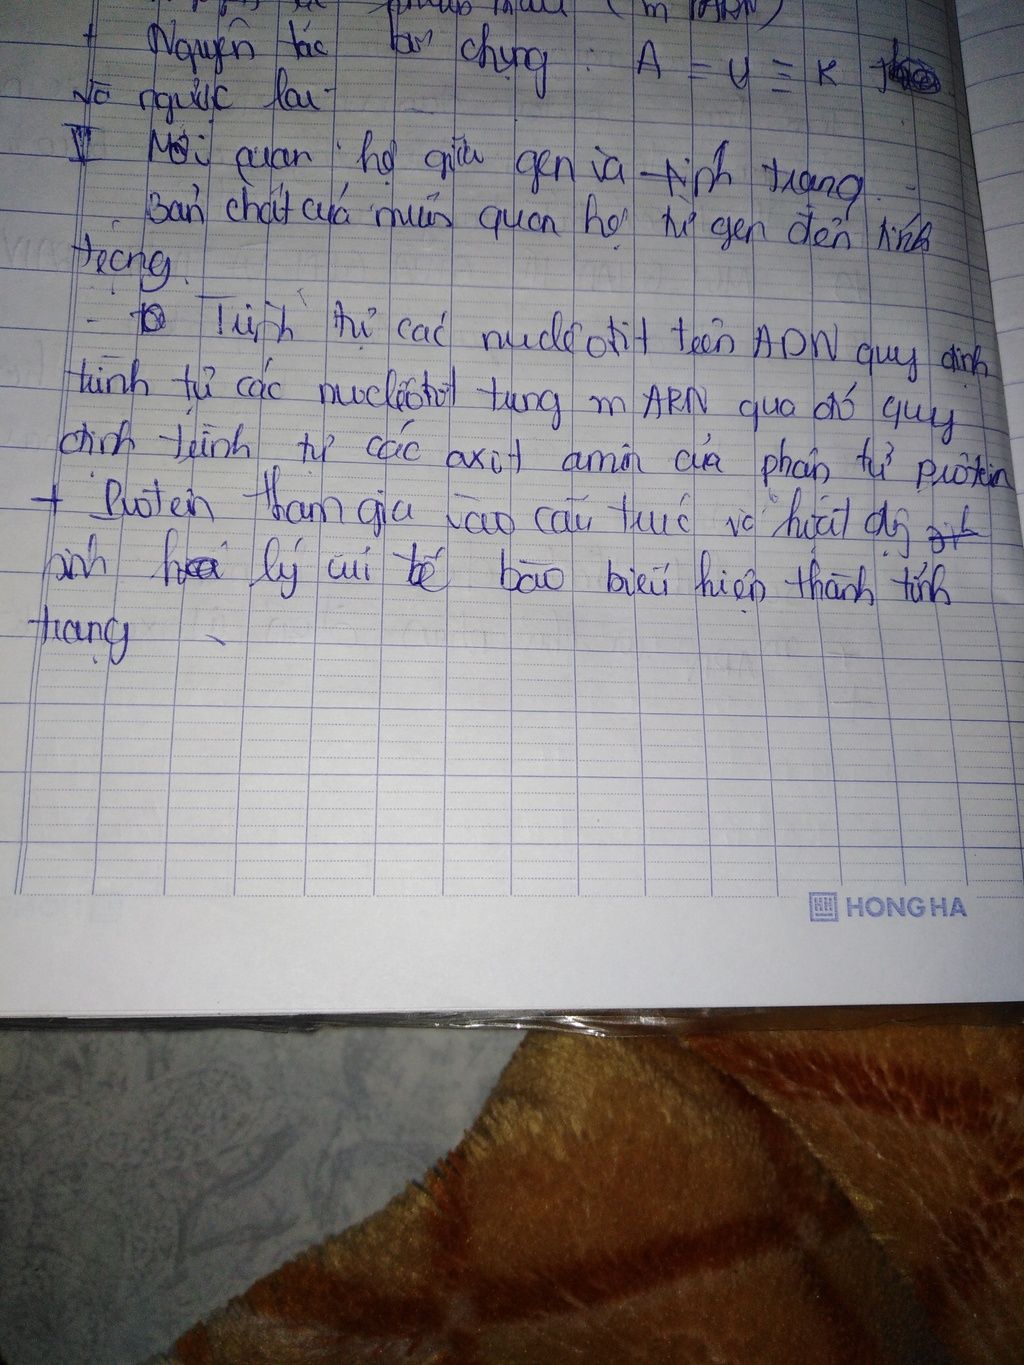 khuôn mẫu (mARN)
+ Nguyên tắc bổ chung : A = U ≡ K
và ngược lại
II Mối quan hệ giữa gen và tính trạng.
Bản chất cuả mối quan hệ từ gen đến tính
trạng.
- Trình tự các nuclêôtit trên ADN quy định
trình tự các nuclêôtit trung mARN qua đó quy
định trình tự các axit amin của phân tử prôtêin
+ Prôtein tham gia vào cấu trúc và hoạt độg
sinh lý cuả tế bào biểu hiện thành tính
trạng
HONG HA